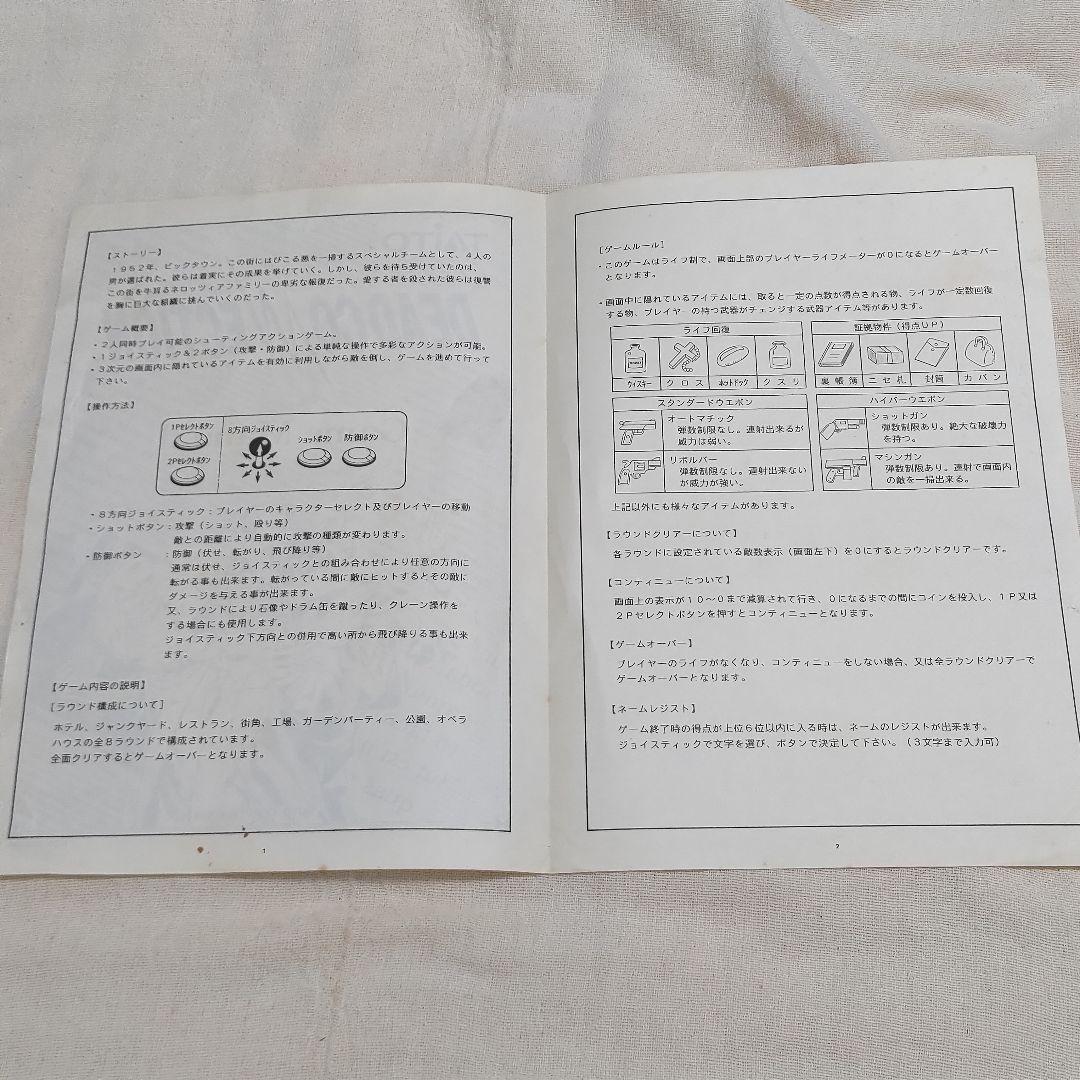 【ストーリー】
１９５２年、ビックタウン。この街にはびこる悪を一掃するスペシャルチームとして、４人の
男が選ばれた。彼らは着実にその成果を挙げていく。しかし、彼らを待ち受けていたのは、
この街を牛耳るネロッツィアファミリーの卑劣な報復だった。愛する者を殺された彼らは復讐
を胸に巨大な組織に挑んでいくのだった。
【ゲーム概要】
・２人同時プレイ可能のシューティングアクションゲーム。
・１ジョイスティック＆２ボタン（攻撃・防御）による単純な操作で多彩なアクションが可能。
・３次元の画面内に隠れているアイテムを有効に利用しながら敵を倒し、ゲームを進めて行って
下さい。
【操作方法】
1Pセレクトボタン
8方向ジョイスティック
ショットボタン 防御ボタン
2Pセレクトボタン
・８方向ジョイスティック：プレイヤーのキャラクターセレクト及びプレイヤーの移動
・ショットボタン：攻撃（ショット、殴り等）
敵との距離により自動的に攻撃の種類が変わります。
・防御ボタン ：防御（伏せ、転がり、飛び降り等）
通常は伏せ、ジョイスティックとの組み合わせにより任意の方向に
転がる事も出来ます。転がっている間に敵にヒットするとその敵に
ダメージを与える事が出来ます。
又、ラウンドにより石像やドラム缶を蹴ったり、クレーン操作を
する場合にも使用します。
ジョイスティック下方向との併用で高い所から飛び降りる事も出来
ます。
【ゲーム内容の説明】
［ラウンド構成について］
ホテル、ジャンクヤード、レストラン、街角、工場、ガーデンパーティー、公園、オペラ
ハウスの全８ラウンドで構成されています。
全面クリアするとゲームオーバーとなります。
1
［ゲームルール］
・このゲームはライフ制で、画面上部のプレイヤーライフメーターが０になるとゲームオーバー
となります。
・画面中に隠れているアイテムには、取ると一定の点数が得点される物、ライフが一定数回復
する物、プレイヤーの持つ武器がチェンジする武器アイテム等があります。
ライフ回復
ウィスキー クロス ホットドック クスリ
証拠物件（得点ＵＰ）
裏帳簿 ニセ札 封筒 カバン
スタンダードウエポン
オートマチック
弾数制限なし。連射出来るが
威力は弱い。
リボルバー
弾数制限なし。連射出来ない
が威力が強い。
ハイパーウエポン
ショットガン
弾数制限あり。絶大な破壊力
を持つ。
マシンガン
弾数制限あり。連射で画面内
の敵を一掃出来る。
上記以外にも様々なアイテムがあります。
【ラウンドクリアーについて】
各ラウンドに設定されている敵数表示（画面左下）を０にするとラウンドクリアーです。
【コンティニューについて】
画面上の表示が１０〜０まで減算されて行き、０になるまでの間にコインを投入し、１Ｐ又は
２Ｐセレクトボタンを押すとコンティニューとなります。
【ゲームオーバー】
プレイヤーのライフがなくなり、コンティニューをしない場合、又は全ラウンドクリアーで
ゲームオーバーとなります。
【ネームレジスト】
ゲーム終了時の得点が上位６位以内に入る時は、ネームのレジストが出来ます。
ジョイスティックで文字を選び、ボタンで決定して下さい。（３文字まで入力可）
2